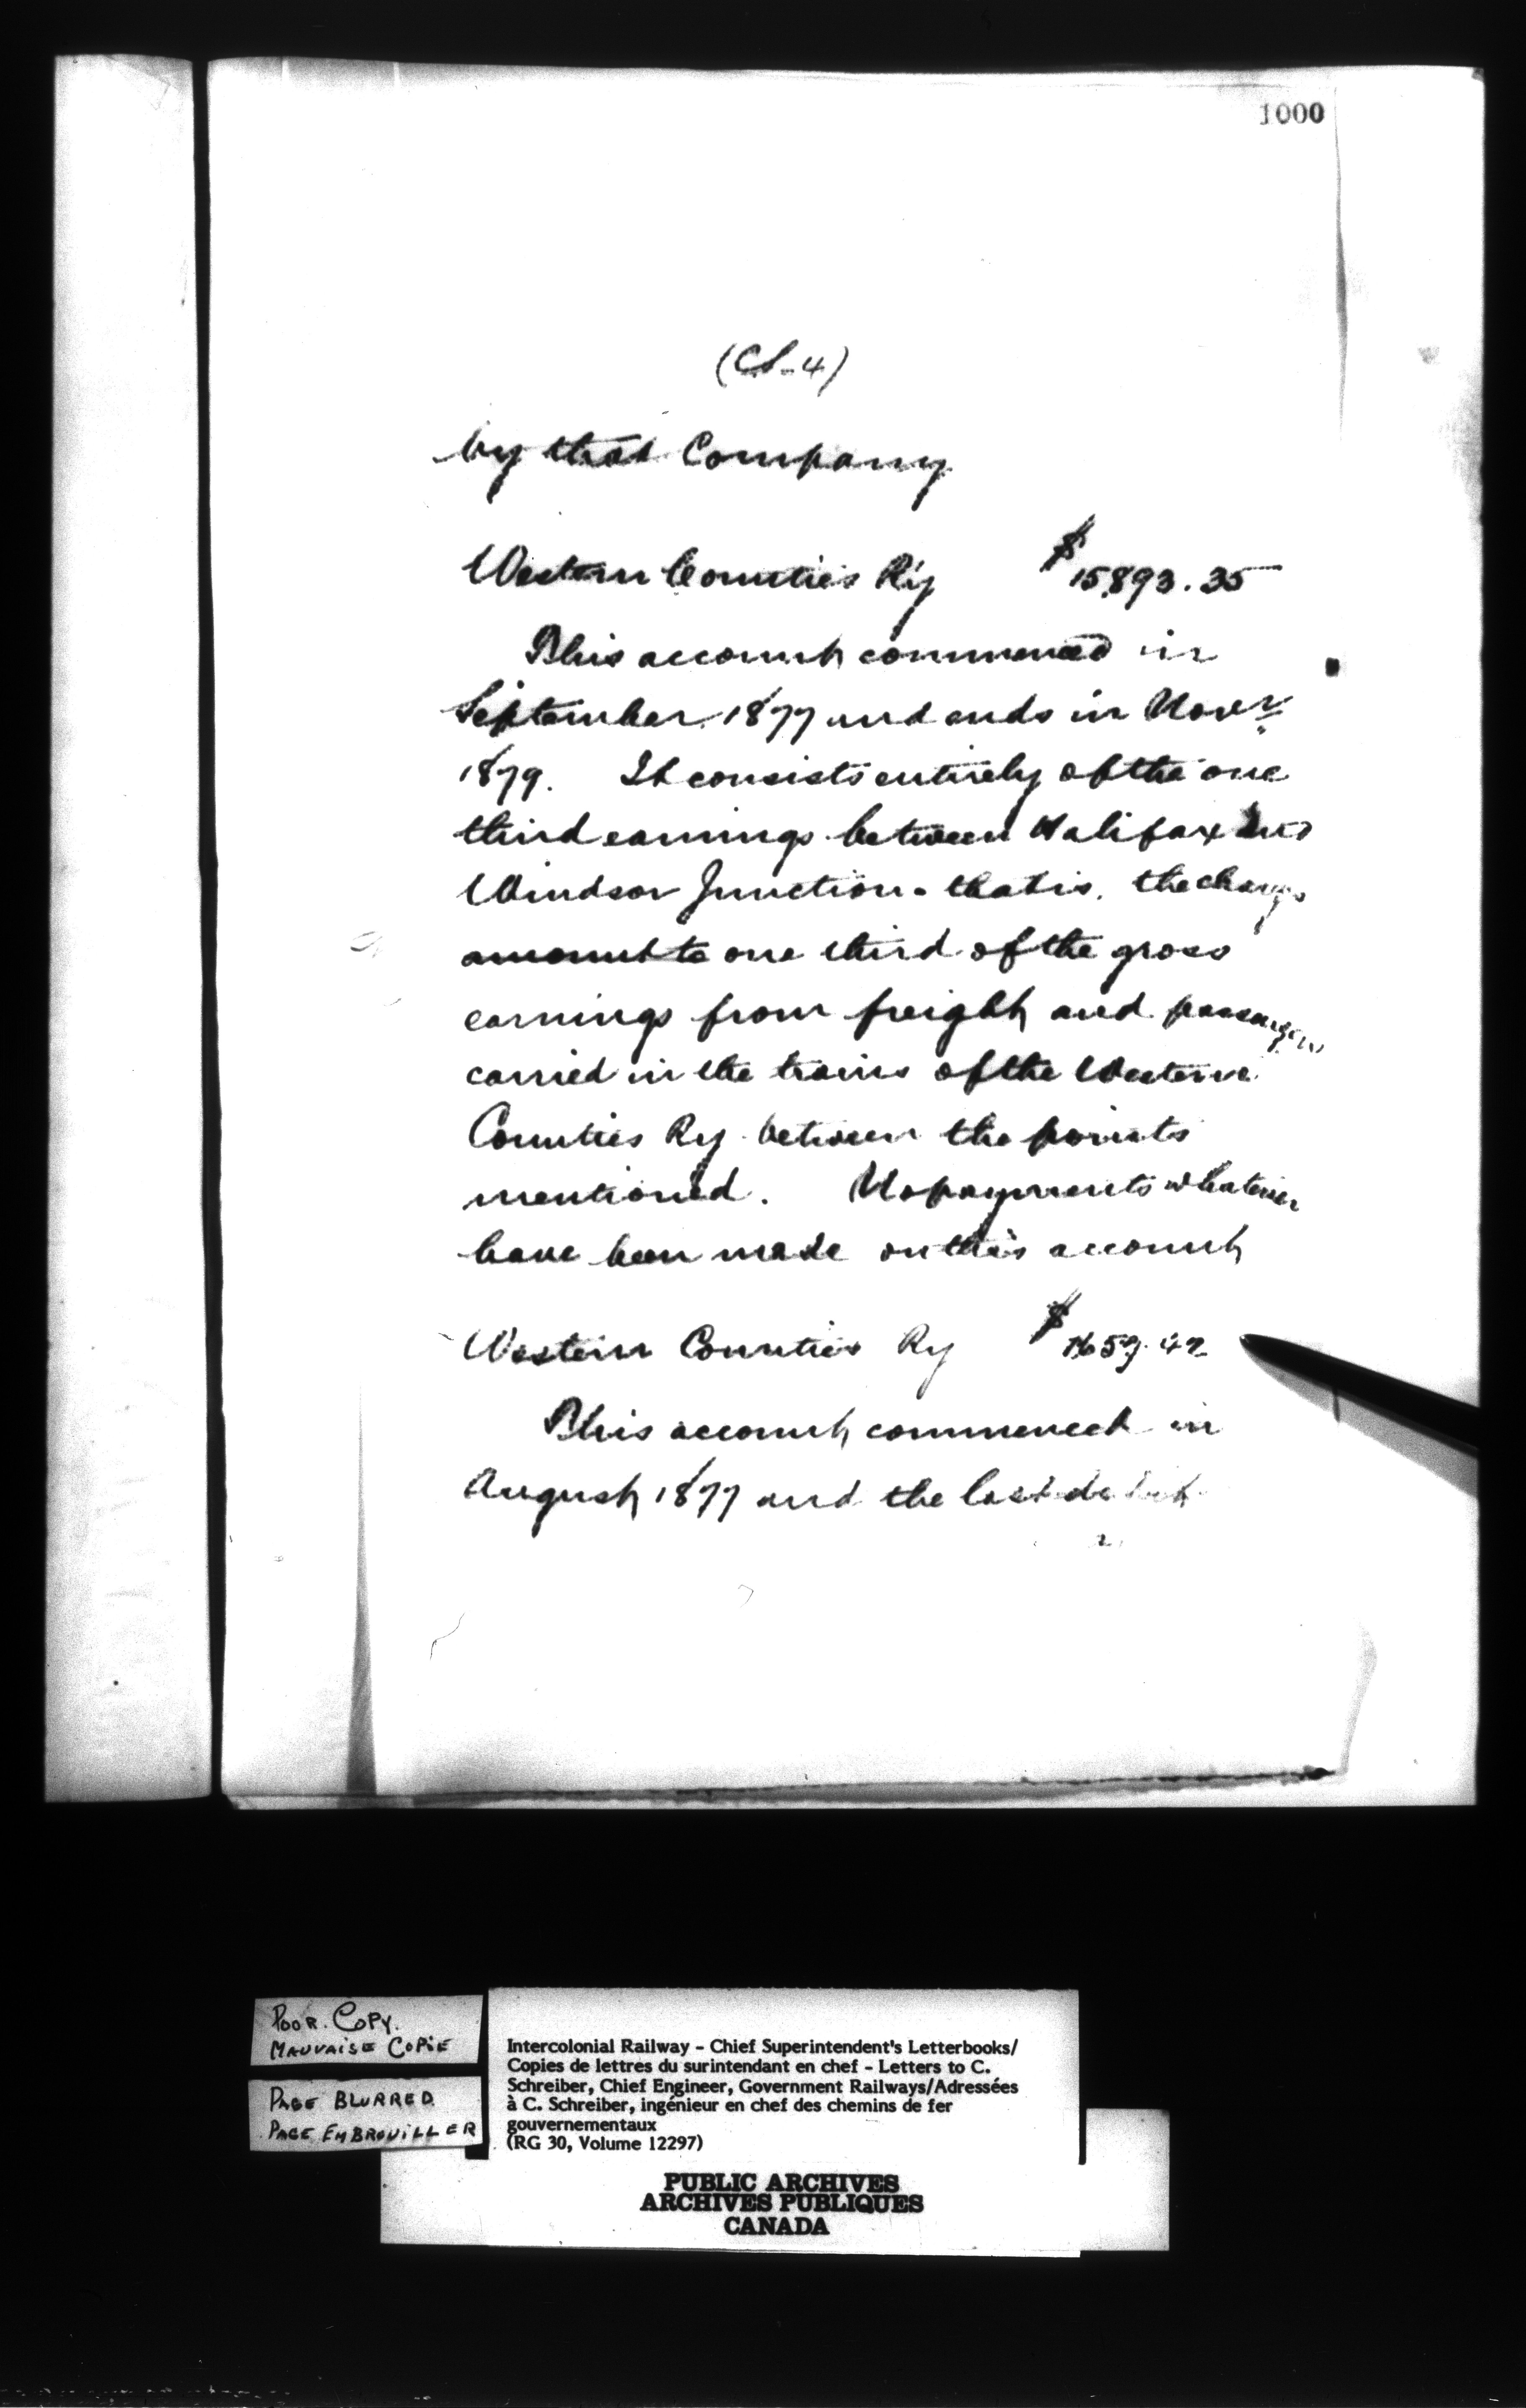 1000
(CS-4)
by that Company
Western Counties Ry $15,893.35
This account commenced in
September 1877 and ends in Novr
1879. It consists entirely of the one
third earnings between Halifax and
Windsor Junction - that is, the charges
amount to one third of the gross
earnings from freight and passengers
carried in the trains of the Western
Counties Ry between the points
mentioned. No payments whatever
have been made on this account
Western Counties Ry
This account commenced in
August 1877 and the last debit
POOR. COPY.
MAUVAISE COPIE
PAGE BLURRED.
PAGE EMBROUILLER
Intercolonial Railway - Chief Superintendent's Letterbooks/
Copies de lettres du surintendant en chef - Letters to C.
Schreiber, Chief Engineer, Government Railways/Adressées
à C. Schreiber, ingénieur en chef des chemins de fer
gouvernementaux
(RG 30, Volume 12297)
PUBLIC ARCHIVES
ARCHIVES PUBLIQUES
CANADA